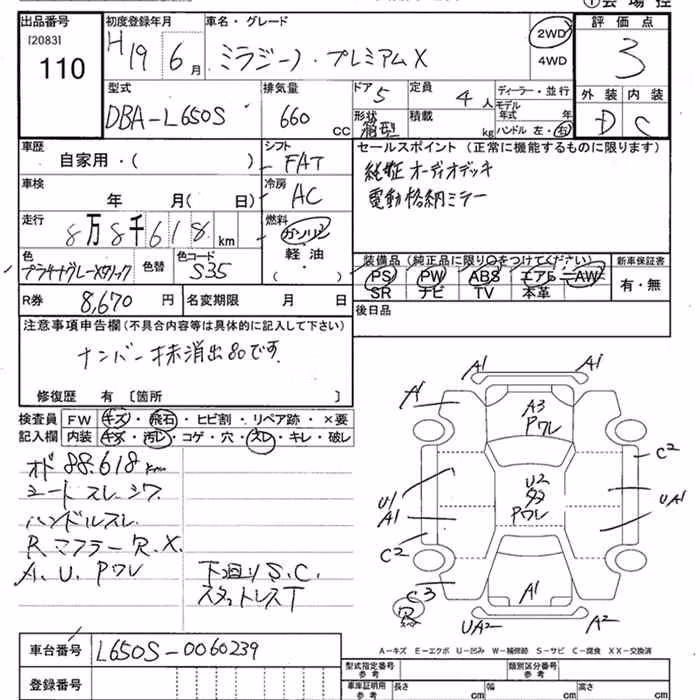 出品番号
[2083]
110
初度登録年月
H19 6月
車名・グレード
ミラジーノ・プレミアムX
2WD
4WD
評価点
3
型式
DBA-L650S
排気量
660 cc
ドア 5
形状 箱型
定員 4人
積載 kg
ディーラー・並行
モデル
年式 年
ハンドル 左・右
外装 内装
D C
車歴
自家用・( )
シフト
FAT
セールスポイント (正常に機能するものに限ります)
純正オーディオデッキ
電動格納ミラー
車検
年 月( 日)
冷房
AC
走行
8万8千618km
燃料
ガソリン
軽油
( )
色
色替
色コード
S35
装備品(純正品に限り○をつけてください)
PS PW ABS エアB AW
SR ナビ TV 本革
新車保証書
有・無
R券
8,670円
名変期限 月 日
後日品
注意事項申告欄(不具合内容等は具体的に記入して下さい)
ナンバー抹消出80です
修復歴 有 〔箇所 〕
検査員
記入欄
FW キズ・飛石・ヒビ割・リペア跡・×要
内装 キズ・汚レ・コゲ・穴・スレ・キレ・破レ
オド 88.618km
シートスレ.シワ
ハンドルスレ
R.マフラーR.X.
A.U.Pワレ
下廻りS.C.
スタットレスT
A1 A1
A1
A3
Pワレ
C2
U1
A1
U2
Pワレ
UA1
C2
C3
A1
R
UA2 A2
A-キズ E-エクボ U-凹み W-補修跡 S-サビ C-腐食 XX-交換済
車台番号
L650S-0060239
登録番号
型式指定番号
参考
類別区分番号
参考
車庫証明用
参考
長さ cm
幅 cm
高さ cm